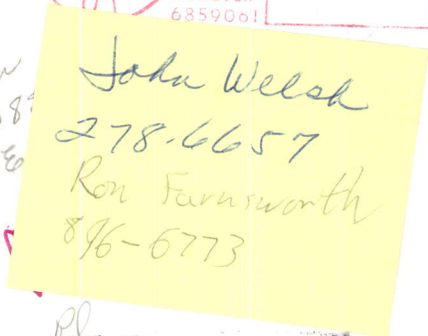 6859061
John Welsh
278-6657
Ron Farnsworth
896-6773